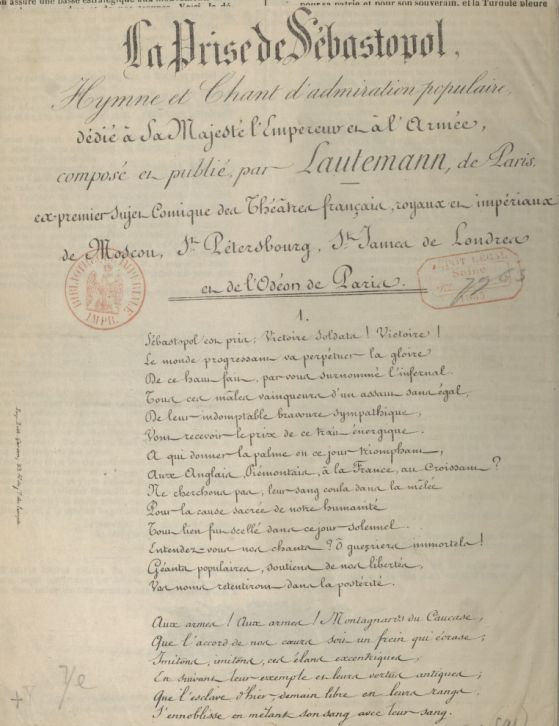 on assure une base stratégique aux
pour sa patrie et pour son souverain, et la Turquie pleure
La Prise de Sébastopol,
Hymne et Chant d'admiration populaire,
dédié à Sa Majesté l'Empereur et à l'Armée,
composé et publié, par Lautemann, de Paris,
ex-premier sujet Comique des Théâtres français, royaux et impériaux
de Moscou, St. Pétersbourg, St. James de Londres
et de l'Odéon de Paris.
BIBLIOTHÈQUE IMPÉRIALE
IMPR.
DÉPOT LÉGAL
Seine
1.
Sébastopol est pris; Victoire Soldats ! Victoire !
Le monde progressant va perpétuer la gloire
De ce haut fait, par vous surnommé l'infernal.
Tous ces mâles vainqueurs d'un assaut sans égal,
De leur indomptable bravoure sympathique,
Vont recevoir le prix de ce trait énergique.
A qui donner la palme en ce jour triomphant,
Aux Anglais, Piémontais, à la France, au Croissant ?
Ne cherchons pas, leur sang coula dans la mêlée
Pour la cause sacrée de notre humanité
Tout lien fut scellé dans ce jour solennel.
Entendez-vous nos chants ? Ô guerriers immortels !
Géants populaires, soutiens de nos libertés,
Vos noms retentiront dans la postérité.
Aux armes ! Aux armes ! Montagnards du Caucase,
Que l'accord de nos cœurs soit un frein qui écrase ;
Imitons, imitons, ces élans excentriques,
En suivant leur exemple et leurs vertus antiques ;
Que l'esclave d'hier, demain libre en leurs rangs,
S'ennoblisse en mêlant son sang avec leur sang.
Ye